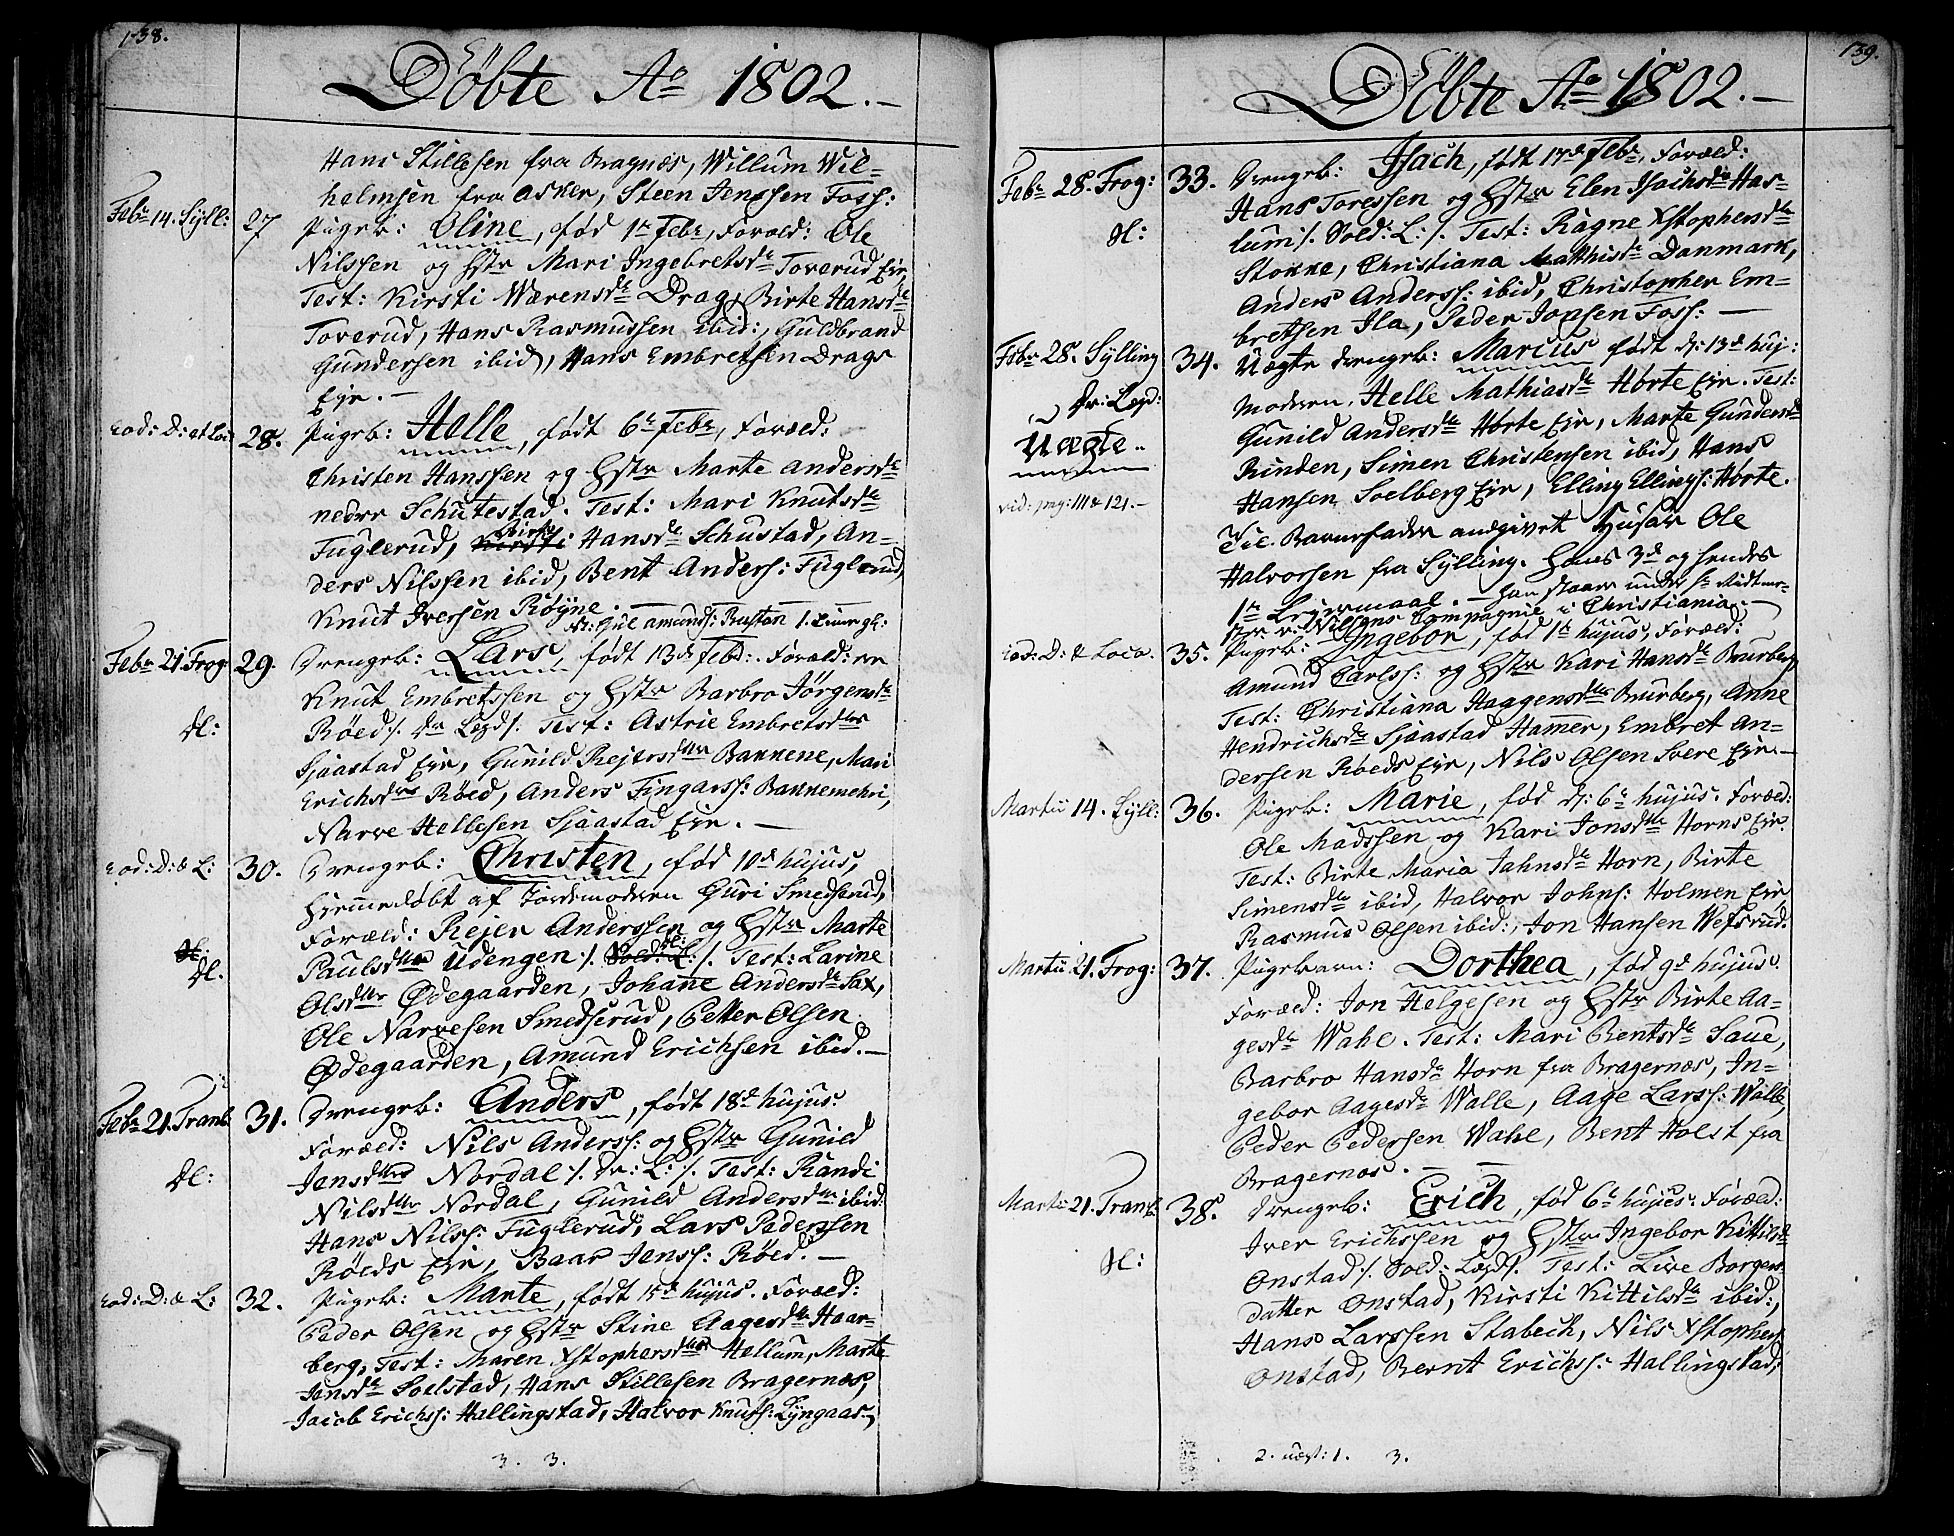 138.
Døbte Aº 1802.—
Hans Stillesen fra Bragnæs, Willum Wil-
helmsen fra Asker, Steen Jenssen Foss:
Febr 14. Syll: 27 Pigeb: Oline, fød 1te Febr, Foræld: Ole
Nilssen og Hstr Mari Ingebretsdtr Toverud Eje,
Test: Kirsti Wærensdtr Drag, Birte Hansdtr
Toverud, Hans Rasmussen ibid:, Guldbrand
Gundersen ibid, Hans Embretsen Drags
Eje.—
eod: D: et Loc: 28. Pigeb: Helle, født 6te Febr, Foræld:
Christen Hanssen og Hstr Marte Andersdtr
nedre Schutestad. Test: Mari Knutsdtr
Fuglerud, Kirsti Birte Hansdtr Schustad, An-
ders Nilssen ibid, Bent Anders: Fuglerud,
Knut Iversen Røyne.—
Febr 21. Frog: 29. Drengeb: Lars, født 13de Febr. Foræld:
Knut Embretssen og Hstr Barbro Jørgensdtr
dl: Røed ⁒ Dr Legd ⁒ Test: Astrie Embretsdtr
Sjaastad Eje, Gunild Rejersdtr Bannene, Mari
Erichsdtr Røed, Anders Fingarss: Bannemehri,
Narve Hellesen Sjaastad Eje.—
eod: D: & L: 30. Drengeb: Christen, fød 10de hujus,
hjemmedøbt af Jordemoderen Guri Smedserud,
Foræld: Rejer Anderssen og Hstr Marte
dl. Paulsdtr Udengen ⁒ Sold: L: ⁒ Test: Larine
Olsdtr Ødegaarden, Johane Andersdtr Sax,
Ole Narvesen Smedserud, Petter Olsen
Ødegaarden, Amund Erichsen ibid.—
Febr 21. Tranb: 31. Drengeb: Anders, født 18de hujus.
Foræld: Nils Anderss: og Hstr Gunild
dl: Jensdtr Nordal ⁒ Dr: L: ⁒ Test: Randi
Nilsdtr Nordal, Gunild Andersdtr ibid.
Hans Nilss: Fuglerud, Lars Pederssen
Røeds Eje, Baar Jenss: Røed.—
eod: D: & L: 32. Pigeb: Marte, født 15de hujus. Foræld:
Peder Olsen og Hstr Stine Aagesdtr Haar-
berg, Test: Maren Xstophersdtr Hellum, Marte
Jensdtr Soelstad, Hans Stillesen Bragernæs,
Jacob Erichss: Hallingstad, Halvor Knuts: Lyngaas,
3. 3.
139.
Døbte Aº 1802.—
Febr 28. Frog: 33. Drengeb: Isach, født 17de Febr, Foræld:
Hans Toressen og Hstr Elen Isachsdtr Has-
dl: lum ⁒ Sold: L: ⁒ Test: Ragne Xstophersdtr
Stokke, Christiana Mathisdtr Danmark,
Anders Anderss: ibid, Christopher Em-
bretsen Ila, Peder Jopsen Foss:—
Febr 28. Sylling 34. Uægte Drengeb: Marcus født d: 13de huj:
Dr: Legd: Moderen, Helle Mathiasdtr Hørte Eje. Test:
Uægte.. Gunild Andersdtr Hørte Eje, Marte Gundersdtr
Rinden, Simen Christensen ibid, Hans
vid: pag: 111 & 121.— Hansen Soelberg Eje, Elling Ellings: Hørte.
Til Barnefader angivet Husar Ole
Halvorsen fra Sylling. Hans 3de og hendes
1te Lejermaal.— han staaer under
Compagnie i Christiania.—
eod: D: & Loco. 35. Pigeb: Ingebor, fød 1te hujus, Foræld:
Amund Carlss: og Hstr Kari Hansdtr Buurberg
Test: Christiana Haagensdtr Buurberg, Anne
Hendrichsdtr Sjaastad Hamer, Embret An-
dersen Røeds Eje, Nils Olsen Svere Eje.—
Martii 14. Syll: 36. Pigeb: Marie, fød d: 6te hujus. Foræld:
Ole Madssen og Kari Jonsdtr Horns Eje.
Test: Birte Maria Jahnsdtr Horn, Birte
Simensdtr ibid, Halvor Johns: Holmen Eje,
Rasmus Olsen ibid:, Jon Hansen Wefsrud.
Martii 21. Frog: 37. Pigebarn: Dorthea, fød 9de hujus.
Foræld: Jon Helgesen og Hstr Birte Aa-
gesdtr Wahe. Test: Mari Bentsdtr Saue,
Barbro Hansdtr Horn fra Bragernæs, In-
gebor Aagesdtr Walle, Aage Larss: Walle,
Peder Pedersen Wahe, Bent Holst fra
Bragernæs.—
Marti: 21. Tranb: 38. Drengeb: Erich, fød 6te hujus. Foræld:
Iver Erichssen og Hstr Ingebor Kittilsdtr
dl: Onstad ⁒ Sold: Legd ⁒ Test: Live Borger-
datter Onstad, Kirsti Kittilsdtr ibid:,
Hans Larssen Stabech, Nils Xstophers:
Onstad, Bernt Erichss: Hallingstad,
2. uægt: 1. 3.